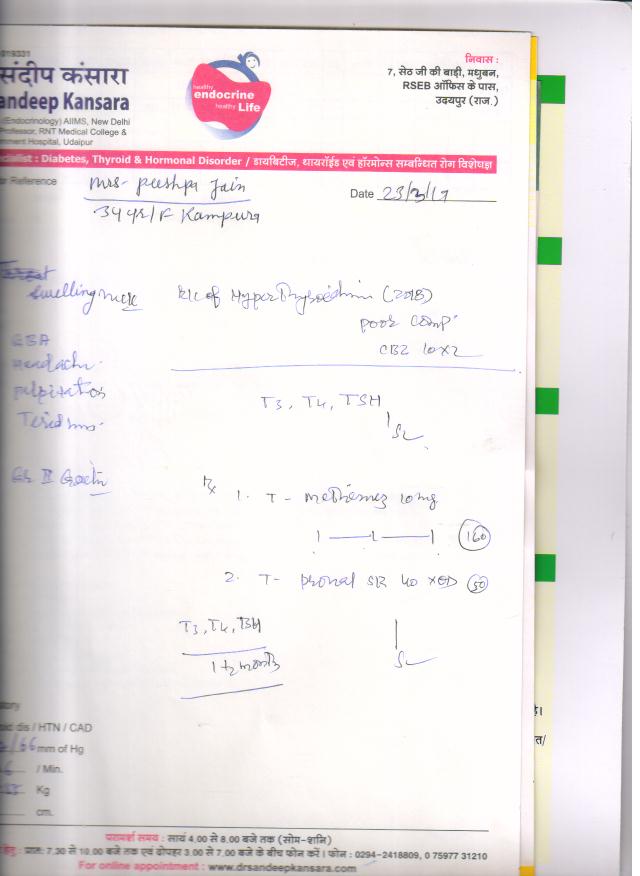 019331
संदीप कंसारा
andeep Kansara
(Endocrinology) AIIMS, New Delhi
Professor, RNT Medical College &
nment Hospital, Udaipur
healthy
endocrine
healthy Life
निवास :
7, सेठ जी की बाड़ी, मधुबन,
RSEB ऑफिस के पास,
उदयपुर (राज.)
cialist : Diabetes, Thyroid & Hormonal Disorder / डायबिटीज, थायरॉईड एवं हॉरमोन्स सम्बन्धित रोग विशेषज्ञ
or Reference
Mrs- Pushpa Jain
Date 23/3/19
34 yr/F Kampura
Swelling neck
K/c of Hyperthyroidism (2018)
poor comp
CBZ 10x2
GBA
Headache
Palpitation
Tiredness
T3, T4, TSH
Gr II Goitre
Rx
1. T- Methimez 10mg
1 — 1 — 1 160
2. T- Pronal SR 40 x OD 50
T3, T4, TSH
1 1/2 month
tory
oid dis / HTN / CAD
/66 mm of Hg
/ Min.
Kg
cm.
है।
त/
परामर्श समय : सायं 4.00 से 8.00 बजे तक (सोम-शनि)
हेतु : प्रात: 7.30 से 10.00 बजे तक एवं दोपहर 3.00 से 7.00 बजे के बीच फोन करें। फोन : 0294-2418809, 0 75977 31210
For online appointment : www.drsandeepkansara.com